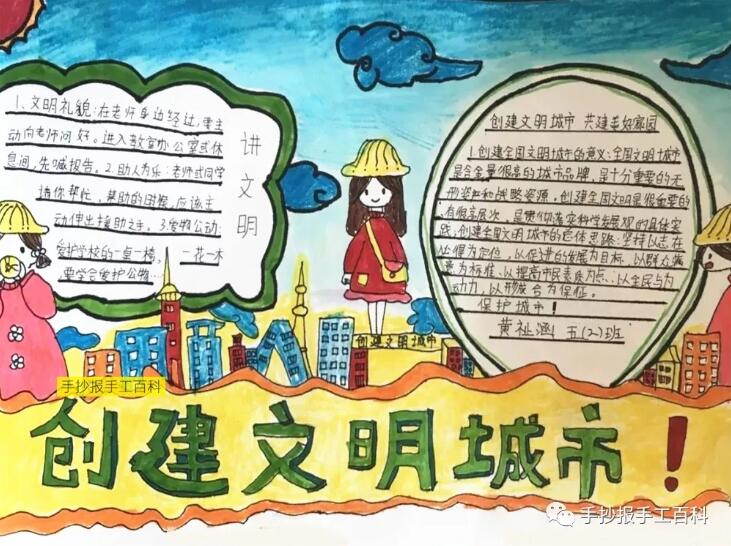 1、文明礼貌:在老师身边经过,要主
动向老师问好。进入教室办公室或休
息间,先喊报告。2.助人为乐:老师或同学
请你帮忙,帮助的时候,应该主
动伸出援助之手。3.爱物公动:
爱护学校的一桌一椅, 一花一木
要学会爱护公物…
讲文明
创建文明城市 共建美好家园
1.创建全国文明城市的意义:全国文明城市
是含金量很高的城市品牌,是十分重要的无
形资产和战略资源。创建全国文明是很重要的
有很高层次,是贯彻落实科学发展观的具体实
践。创建全国文明城市的总体思路:坚持以志在
必得为定位,以促进的发展为目标,以群众满
意为标准、以提高市民素质为点、以全民与为
动力,以形成合为保证。
保护城市!
黄祉涵 五(2)班
创建文明城市
手抄报手工百科
创建文明城市!
手抄报手工百科